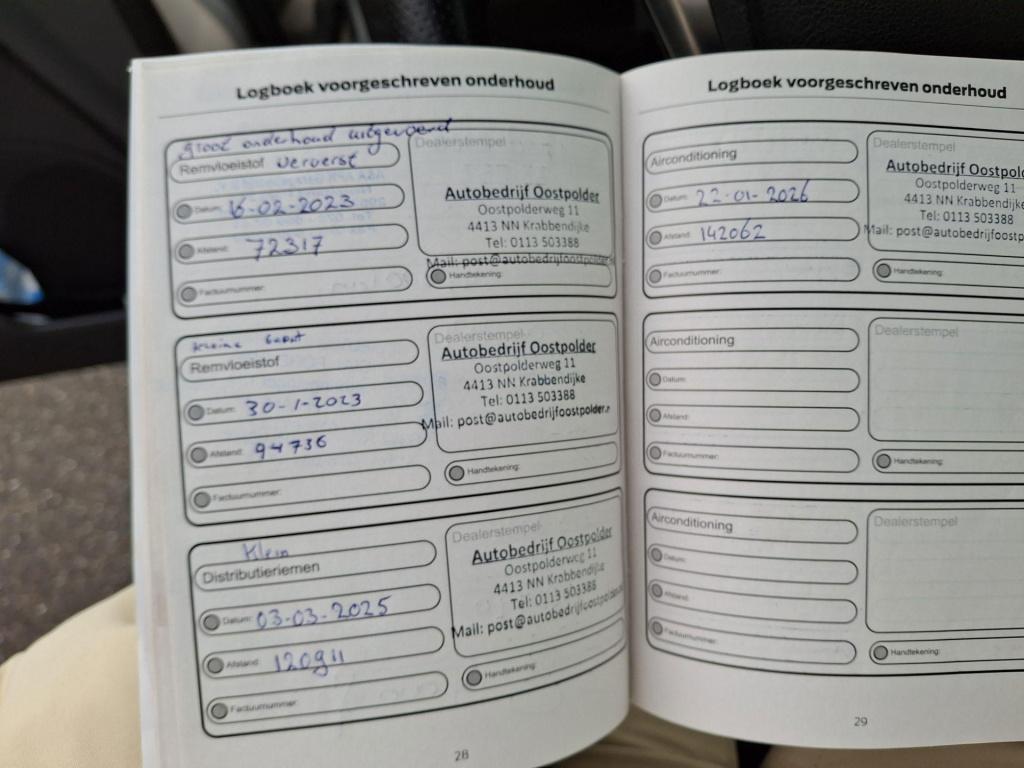 Logboek voorgeschreven onderhoud
groot onderhoud uitgevoerd
Remvloeistof ververst
Datum: 16-02-2023
Afstand: 72317
Factuurnummer:
Dealerstempel
Autobedrijf Oostpolder
Oostpolderweg 11
4413 NN Krabbendijke
Tel: 0113 503388
Mail: post@autobedrijfoostpolder.
Handtekening:
kleine beurt
Remvloeistof
Datum: 30-1-2023
Afstand: 94736
Factuurnummer:
Dealerstempel
Autobedrijf Oostpolder
Oostpolderweg 11
4413 NN Krabbendijke
Tel: 0113 503388
Mail: post@autobedrijfoostpolder.n
Handtekening:
Klein
Distributieriemen
Datum: 03-03-2025
Afstand: 120911
Factuurnummer:
Dealerstempel
Autobedrijf Oostpolder
Oostpolderweg 11
4413 NN Krabbendijke
Tel: 0113 503388
Mail: post@autobedrijfoostpolder.
Handtekening:
28
Logboek voorgeschreven onderhoud
Airconditioning
Datum: 22-01-2026
Afstand: 142062
Factuurnummer:
Dealerstempel
Autobedrijf Oostpol
Oostpolderweg 11
4413 NN Krabbendijke
Tel: 0113 503388
Mail: post@autobedrijfoostp
Handtekening:
Airconditioning
Datum:
Afstand:
Factuurnummer:
Dealerstempel
Handtekening:
Airconditioning
Datum:
Afstand:
Factuurnummer:
Dealerstempel
Handtekening:
29